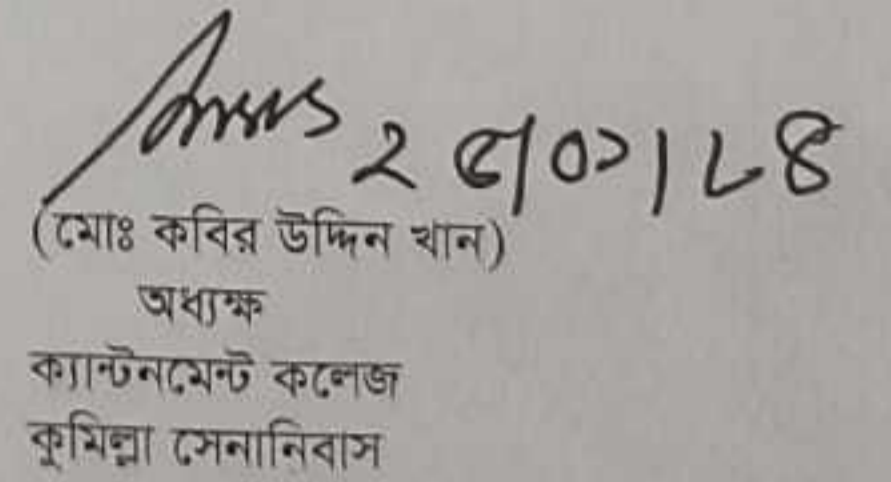 ২৫/০১/৮৪
(মোঃ কবির উদ্দিন খান)
অধ্যক্ষ
ক্যান্টনমেন্ট কলেজ
কুমিল্লা সেনানিবাস